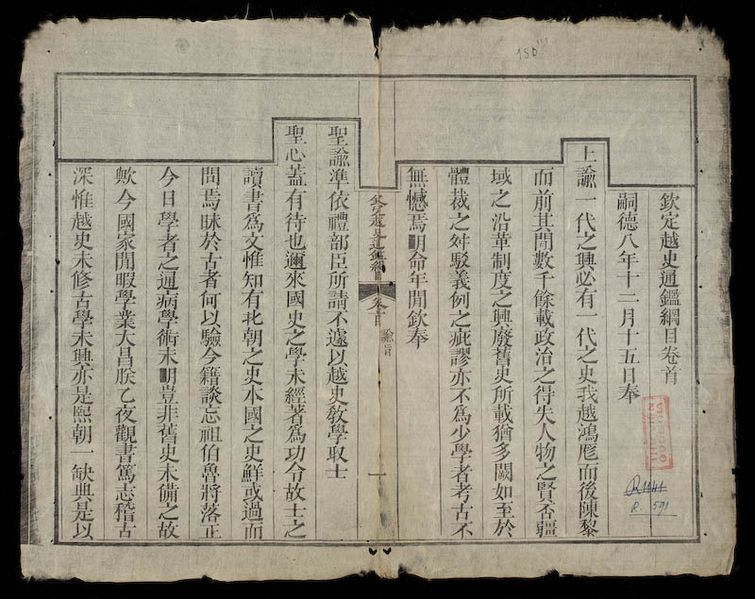 欽定越史通鑑綱目卷首
嗣德八年十二月十五日奉
上諭一代之興必有一代之史我越鴻厖而後陳黎
而前其間數千餘載政治之得失人物之賢否疆
域之沿革制度之興廢舊史所載猶多闕如至於
體裁之舛駁義例之疵謬亦不爲少學者考古不
無憾焉明命年間欽奉
欽定越史通鑑綱目 卷首 諭旨 一
聖諭準依禮部臣所請不遽以越史敎學取士
聖心蓋有待也邇來國史之學未經著爲功令故士之
讀書爲文惟知有北朝之史本國之史鮮或過而
問焉昧於古者何以驗今籍談忘祖伯魯將落正
今日學者之通病學術未明豈非舊史未備之故
歟今國家閒暇學業大昌朕乙夜觀書篤志稽古
深惟越史未修古學未興亦是熙朝一缺典是以
150
R.591